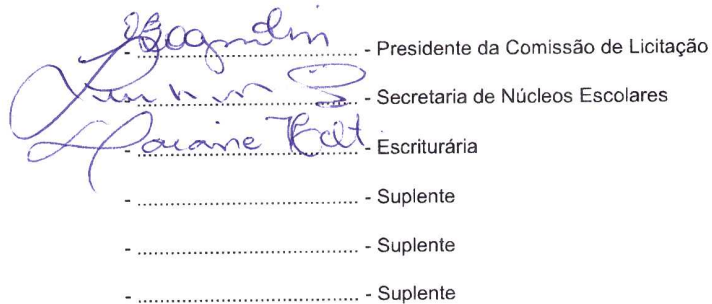 - ........................................ - Presidente da Comissão de Licitação
- ........................................ - Secretaria de Núcleos Escolares
- ........................................ - Escriturária
- ........................................ - Suplente
- ........................................ - Suplente
- ........................................ - Suplente